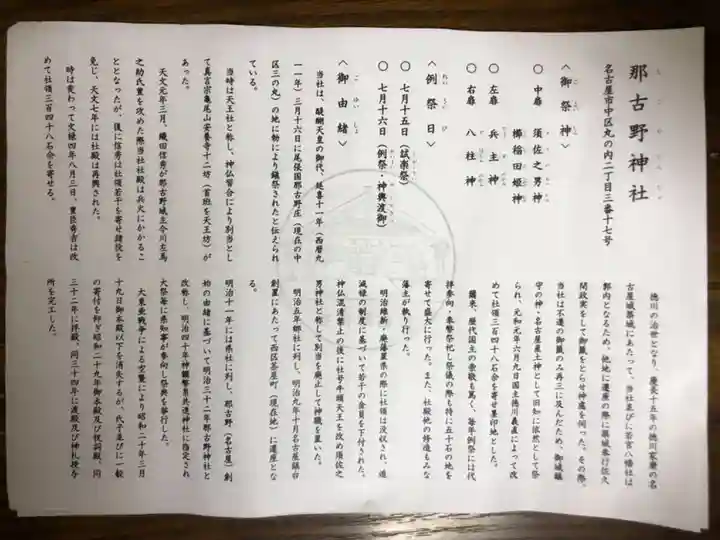 那古野神社
名古屋市中区丸の内二丁目三番十七号
〈御祭神〉
〇 中扉 須佐之男神
櫛稲田姫神
〇 左扉 兵主神
〇 右扉 八柱神
〈例祭日〉
〇 七月十五日(試楽祭)
〇 七月十六日(例祭・神輿渡御)
〈御由緒〉
当社は、醍醐天皇の御代、延喜十一年(西暦九
一一年)三月十六日に尾張国那古野庄(現在の中
区三の丸)の地に勅により鎮祭されたと伝えられ
ている。
当時は天王社と称し、神仏習合により別当とし
て真言宗亀尾山安養寺十二坊(首班を天王坊)が
あった。
天文元年三月、織田信秀が那古野城主今川左馬
之助氏豊を攻めた際当社社殿は兵火にかかるこ
ととなったが、後に信秀は社領若干を寄せ諸役を
免じ、天文七年には社殿は再興された。
時は変わって文禄四年八月三日、豊臣秀吉は改
めて社領三百四十八石余を寄せる。
徳川の治世となり、慶長十五年の徳川家康の名
古屋城築城にあたって、当社並びに若宮八幡社は
郭内となるため、他地に遷座の際に築城奉行佐久
間政実をして御籤をとらせ神慮を伺った。その際、
当社は不遷の御籤のみ再三に及んだため、御城鎮
守の神・名古屋産土神として旧知に依然として祭
られ、元和元年六月九日国主徳川義直によって改
めて社領三百四十八石余を寄せ墨印地とした。
爾来、歴代国主の崇敬も篤く、毎年例祭には代
拝参向・奉幣祭祀し祭儀の際も特に五十石の地を
寄せて盛大に行った。また、社殿他の修造もみな
藩主が執り行った。
明治維新・廃藩置県の際に社領は没収され、逓
減禄の制度に基づいて若干の金員を下付された。
神仏混淆禁止の後に社号牛頭天王を改め須佐之
男神社と称して別当を廃止して神職を置いた。
明治五年郷社に列し、明治九年十月名古屋鎮台
創置にあたって西区茶屋町(現在地)に遷座とな
る。
明治十一年には県社に列し、那古野(名古屋)創
始の由緒に基づいて明治三十二年那古野神社と
改称し、明治四十年神饌幣帛共進神社に指定され
大祭毎に県知事が参向し祭典を挙行した。
大東亜戦争による空襲により昭和二十年三月
十九日御本殿以下を消失するが、氏子並びに一般
の寄付を仰ぎ昭和二十九年御本殿及び祝詞殿、同
三十二年に拝殿、同三十四年に渡殿及び神札授与
所を完工した。